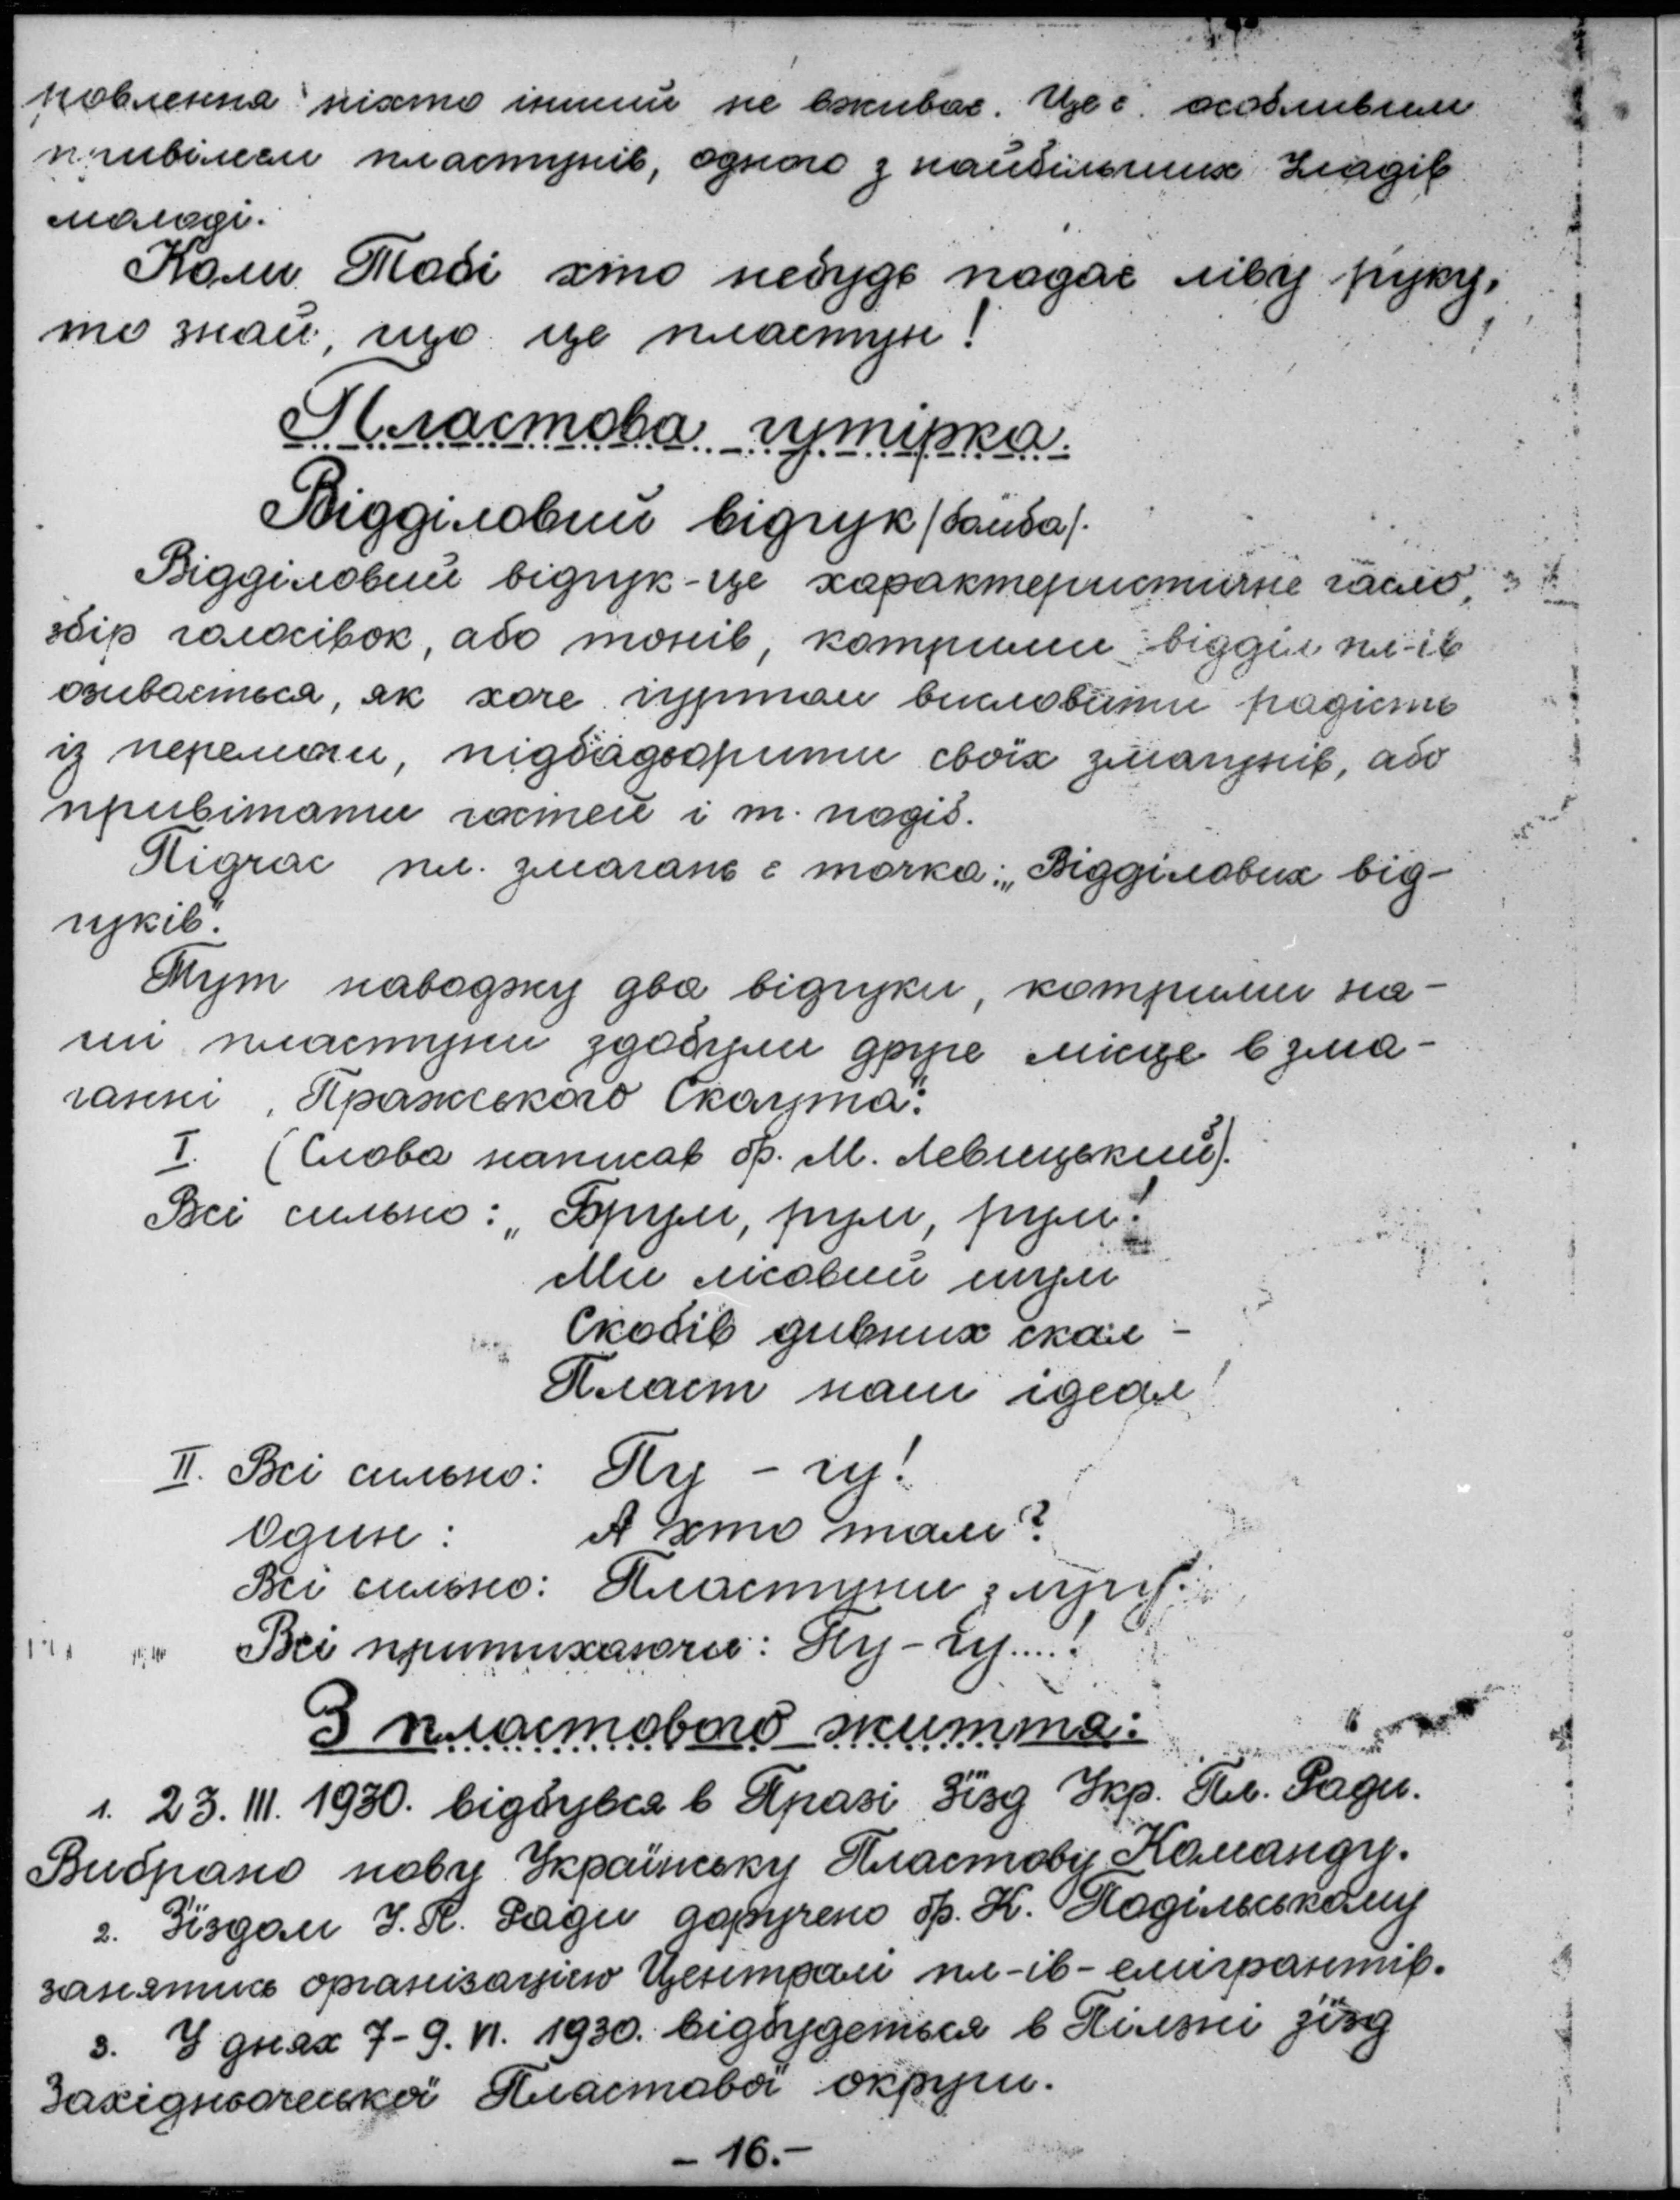 новлення ніхто інший не вживає. Це є особливим
привілєм пластунів, одного з найбільших Уладів
молоді.
Коли Тобі хто небудь подає ліву руку,
то знай, що це пластун!
Пластова гутірка.
Відділовий відгук /байба/.
Відділовий відгук - це характеристичне гасло,
збір голосівок, або тонів, котрими відділ пл-ів
озивається, як хоче гуртом висловити радість
із перемоги, підбадьорити своїх змагунів, або
привітати гостей і т. подіб.
Підчас пл. змагань є точка: „Відділових від-
гуків".
Тут наводжу два відгуки, котрими на-
ші пластуни здобули друге місце в зма-
ганні „Пражського Скаута":
I. (Слова написав бр. М. Левицький).
Всі сильно: „Брум, рум, рум!
Ми лісовий шум
Скобів дивних скал -
Пласт наш ідеал!
II. Всі сильно: Пу - гу!
Один: А хто там?
Всі сильно: Пластуни з лугу!
Всі притихаючи: Пу - гу....!
З пластового життя:
1. 23. III. 1930. відбувся в Празі Зїзд Укр. Пл. Ради.
Вибрано нову Українську Пластову Команду.
2. Зїздом У. П. Ради доручено бр. К. Подільському
занятись організацією Централі пл-ів-емігрантів.
3. У днях 7-9. VI. 1930. відбудеться в Пілзні зїзд
Західньочеської Пластової округи.
- 16. -